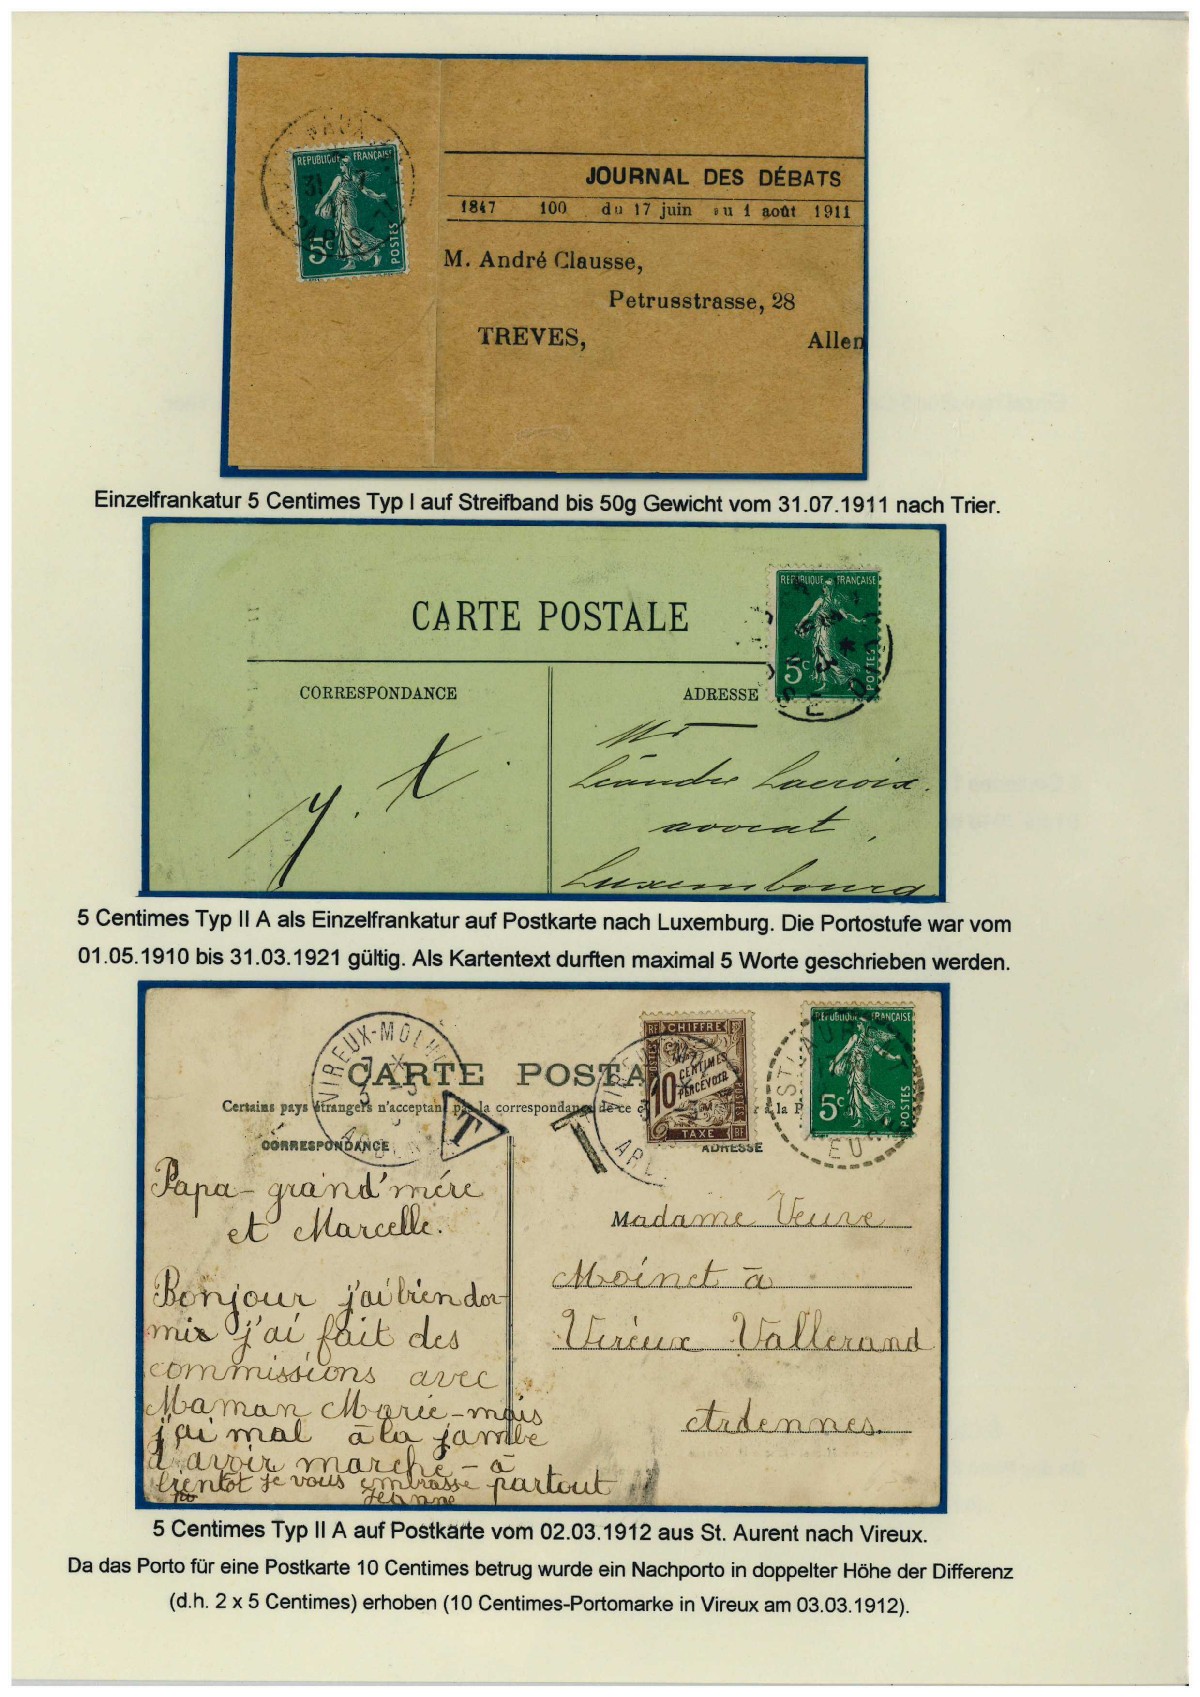 REPUBLIQUE FRANÇAISE
5c POSTES
JOURNAL DES DÉBATS
1847 100 du 17 juin au 1 août 1911
M. André Clausse,
Petrusstrasse, 28
TREVES, Allem
Einzelfrankatur 5 Centimes Typ I auf Streifband bis 50g Gewicht vom 31.07.1911 nach Trier.
REPUBLIQUE FRANÇAISE
5c POSTES
CARTE POSTALE
CORRESPONDANCE
ADRESSE
Mr
Léandre Lacroix.
avocat,
Luxembourg
5 Centimes Typ II A als Einzelfrankatur auf Postkarte nach Luxemburg. Die Portostufe war vom
01.05.1910 bis 31.03.1921 gültig. Als Kartentext durften maximal 5 Worte geschrieben werden.
VIREUX-MOLH
RF CHIFFRE
10 CENTIMES
PERCEVOIR
POSTES
TAXE RF
REPUBLIQUE FRANÇAISE
5c POSTES
CARTE POSTA
Certains pays étrangers n'acceptent pas la correspondance de ce c
T
T
CORRESPONDANCE
ADRESSE
Papa - grand'mére
et Marcelle.
Bonjour j'ai bien dor-
mix j'ai fait des
commissions avec
Maman Marie - mais
j'ai mal à la jambe
d'avoir marché - à
bientot je vous embrasse partout
Jeanne
Madame Veuve
Moinet à
Vireux Vallerand
Ardennes.
5 Centimes Typ II A auf Postkarte vom 02.03.1912 aus St. Aurent nach Vireux.
Da das Porto für eine Postkarte 10 Centimes betrug wurde ein Nachporto in doppelter Höhe der Differenz
(d.h. 2 x 5 Centimes) erhoben (10 Centimes-Portomarke in Vireux am 03.03.1912).